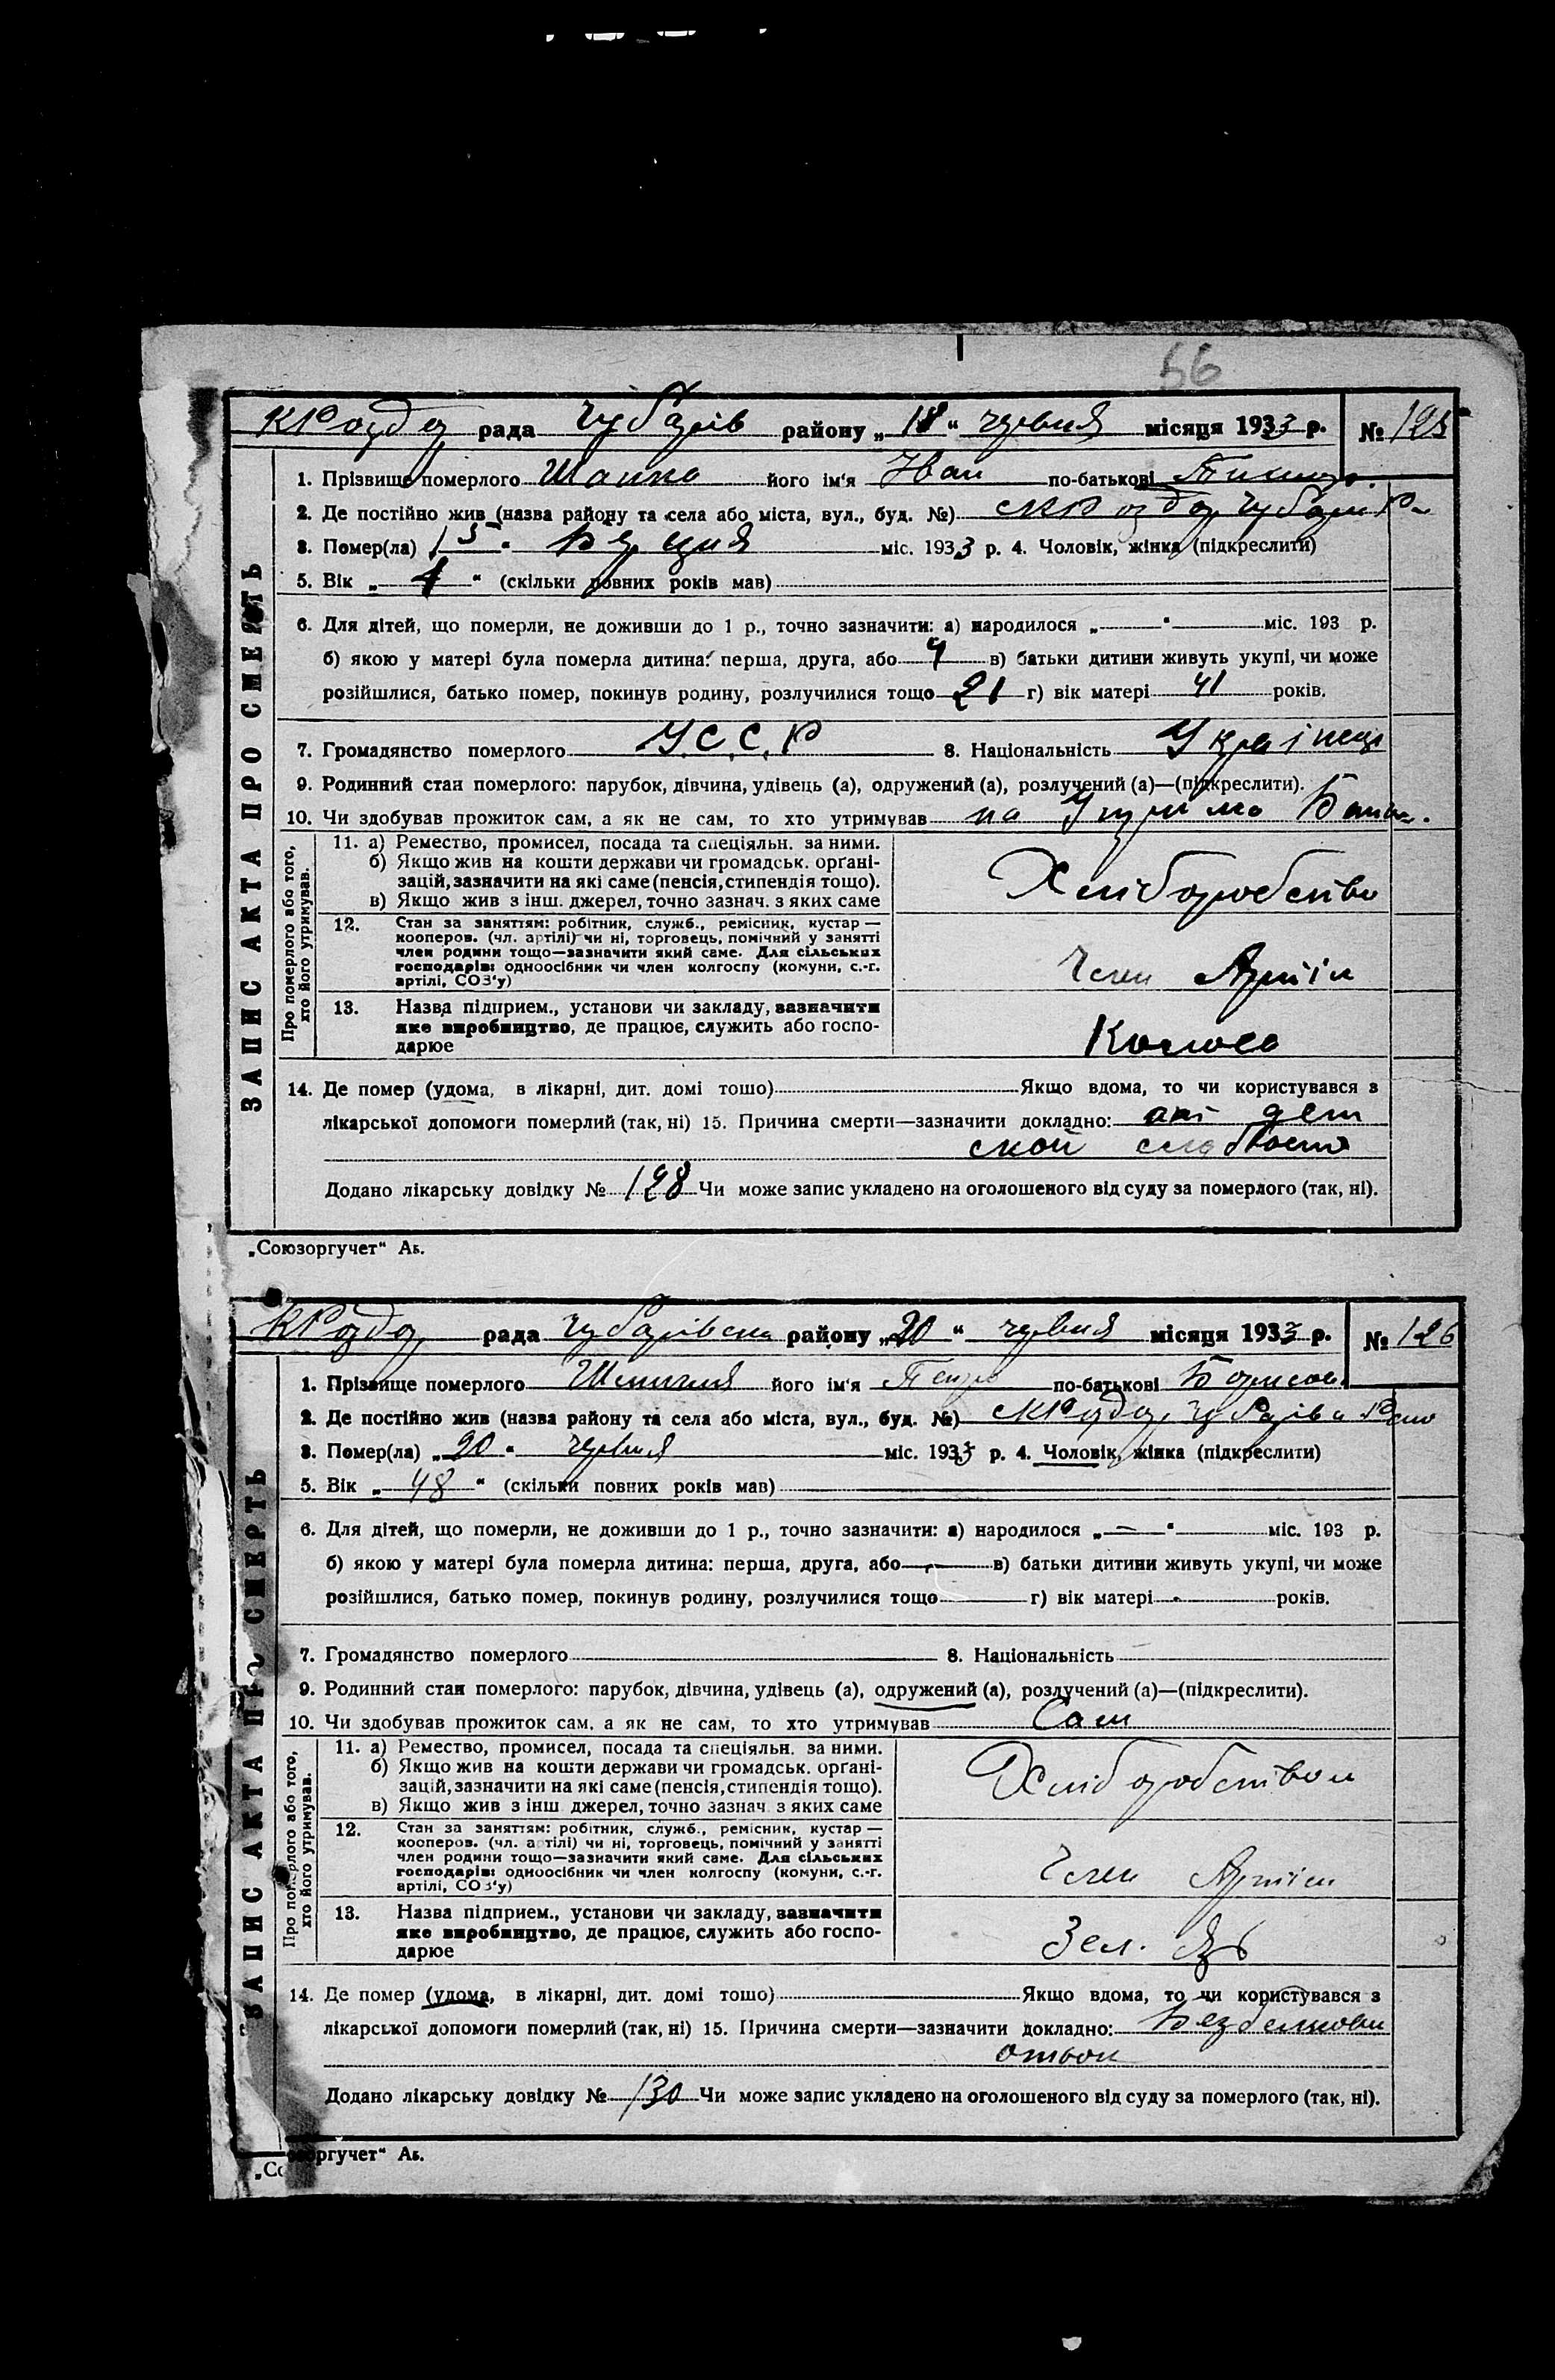 66
рада Чубарів району „18“ червня місяця 1933 р. № 125
ЗАПИС АКТА ПРО СМЕРТЬ
1. Прізвище померлого його ім'я Іван по-батькові
2. Де постійно жив (назва району та села або міста, вул., буд. №)
3. Помер(ла) 15 міс. 1933 р. 4. Чоловік, жінка (підкреслити)
5. Вік „ “ (скільки повних років мав)
6. Для дітей, що померли, не доживши до 1 р., точно зазначити: а) народилося „ “ міс. 193 р.
б) якою у матері була померла дитина: перша, друга, або 4 в) батьки дитини живуть укупі, чи може
розійшлися, батько помер, покинув родину, розлучилися тощо 21 г) вік матері 41 років.
7. Громадянство померлого У.С.С.Р 8. Національність Українец
9. Родинний стан померлого: парубок, дівчина, удівець (а), одружений (а), розлучений (а)—(підкреслити).
10. Чи здобував прожиток сам, а як не сам, то хто утримував на
Про померлого або того, хто його утримував.
11. а) Ремество, промисел, посада та спеціяльн. за ними.
б) Якщо жив на кошти держави чи громадськ. орґані-
зацій, зазначити на які саме (пенсія, стипендія тощо).
в) Якщо жив з інш. джерел, точно зазнач. з яких саме
Хліборобство
12. Стан за заняттям: робітник, служб., ремісник, кустар —
кооперов. (чл. артілі) чи ні, торговець, помічний у занятті
член родини тощо—зазначити який саме. Для сільських
господарів: одноосібник чи член колгоспу (комуни, с.-г.
артілі, СОЗ'у)
Член Артіл
13. Назва підприєм., установи чи закладу, зазначити
яке виробництво, де працює, служить або госпо-
дарює
14. Де помер (удома, в лікарні, дит. домі тошо) Якщо вдома, то чи користувався з
лікарської допомоги померлий (так, ні) 15. Причина смерти—зазначити докладно: от дет
ской слабости
Додано лікарську довідку № 128 Чи може запис укладено на оголошеного від суду за померлого (так, ні).
„Союзоргучет“ АБ.
рада Чубарівска району „20“ червня місяця 1933 р. № 126
ЗАПИС АКТА ПРО СМЕРТЬ
1. Прізвище померлого його ім'я Петро по-батькові Борисов
2. Де постійно жив (назва району та села або міста, вул., буд. №)
3. Помер(ла) „20“ червня міс. 1933 р. 4. Чоловік, жінка (підкреслити)
5. Вік „48“ (скільки повних років мав)
6. Для дітей, що померли, не доживши до 1 р., точно зазначити: а) народилося „—“ міс. 193 р.
б) якою у матері була померла дитина: перша, друга, або — в) батьки дитини живуть укупі, чи може
розійшлися, батько помер, покинув родину, розлучилися тощо г) вік матері - років.
7. Громадянство померлого 8. Національність
9. Родинний стан померлого: парубок, дівчина, удівець (а), одружений (а), розлучений (а)—(підкреслити).
10. Чи здобував прожиток сам, а як не сам, то хто утримував Сам
Про померлого або того, хто його утримував.
11. а) Ремество, промисел, посада та спеціяльн. за ними.
б) Якщо жив на кошти держави чи громадськ. орґані-
зацій, зазначити на які саме (пенсія, стипендія тощо).
в) Якщо жив з інш джерел, точно зазнач з яких саме
Хліборобством
12. Стан за заняттям: робітник, служб., ремісник, кустар —
кооперов. (чл. артілі) чи ні, торговець, помічний у занятті
член родини тощо—зазначити який саме. Для сільських
господарів: одноосібник чи член колгоспу (комуни, с.-г.
артілі, СОЗ'у)
Член Артіли
13. Назва підприєм., установи чи закладу, зазначити
яке виробництво, де працює, служить або госпо-
дарює
Зел.
14. Де помер (удома, в лікарні, дит. домі тошо) Якщо вдома, то чи користувався з
лікарської допомоги померлий (так, ні) 15. Причина смерти—зазначити докладно: Безбелковы
отьок
Додано лікарську довідку № 130 Чи може запис укладено на оголошеного від суду за померлого (так, ні).
„Со зоргучет“ Аб.